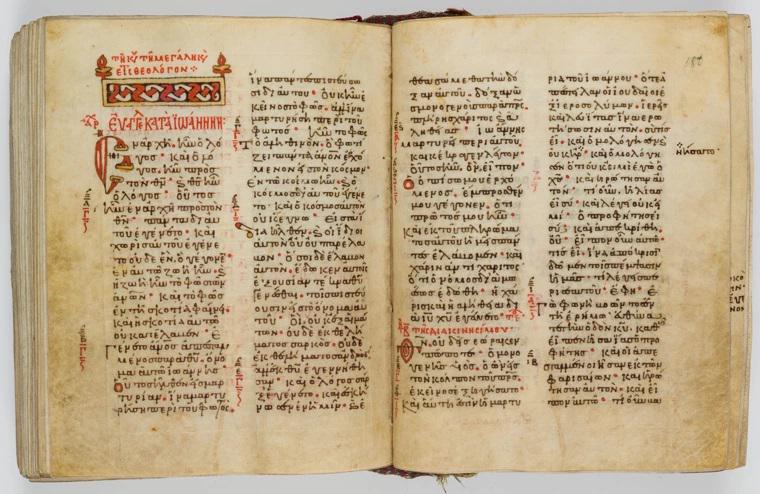 τῇ κυ τῇ μεγάλη κυ
εἰς θεολόγον
εὐαγγ κατὰ ἰωάννην
Ἐν ἀρχῆ ἦν ὁ λό
γος · καὶ ὁ λό
γος ἦν πρὸς
τὸν θν · κ θς ἦν
ὁ λόγος · οὗτος
ἦν ἐν ἀρχῆ πρὸς τὸν
θν · πάντα δι' αὐ
τοῦ ἐγένετο · καὶ
χωρὶς αὐτοῦ ἐγένε
το οὐδὲ ἕν. ὃ γέγονε
ἐν αὐτῶ ζωὴ ἦν · κ
ἡ ζωὴ ἦν τὸ φῶς τῶν
ἀνων · καὶ τὸ φῶς
ἐν τῆ σκοτία φαίνει
καὶ ἡ σκοτία αὐτὸ
οὐ κατέλαβεν · Ἐ
γένετο ἄνος ἀπεσταλ
μένος παρὰ θυ · ὄνο
μα αὐτῶ ἰωάννης ·
Οὗτος ἦλθεν εἰς μαρ
τυρίαν · ἵνα μαρτυ
ρήση περὶ τοῦ φωτός ·
ἵνα πάντες πιστεύσω
σι δι' αὐτοῦ · οὐκ ἦν ἐ
κεῖνος τὸ φῶς · ἀλλ' ἵνα
μαρτυρήση περὶ τοῦ
φωτός · ἦν τὸ φῶς
Τὸ ἀληθινόν · ὃ φωτί
ζει πάντα ἄνον ἐρχό
μενον εἰς τὸν κόσμον ·
Ἐν τῶ κόσμω ἦν · κ ὁ
κόσμος δι' αὐτοῦ ἐγένε
το · καὶ ὁ κόσμος αὐτὸν
οὐκ ἔγνω · Εἰς τὰ ἴ
δια ἦλθεν · κ οἱ ἴδιοι
αὐτὸν οὐ παρέλα
βον · ὅσοι δὲ ἔλαβον
αὐτόν · ἔδωκεν αὐτοῖς
ἐξουσίαν τέκνα θυ
γενέσθαι · τοῖς πιστεύ
ουσιν εἰς τὸ ὄνομα αὐ
τοῦ · οἳ οὐκ ἐξ αἱμά
των · οὐδὲ ἐκ θελή
ματος σαρκός · οὐδὲ
ἐκ θελήματος ἀνδρὸς
ἀλλ' ἐκ θυ ἐγεννήθη
σαν · καὶ ὁ λόγος σὰρξ
ἐγένετο · καὶ ἐσκή
νωσεν ἐν ἡμῖν · κ ἐ
θεασάμεθα τὴν δό
ξαν αὐτοῦ · δόξαν ὡ
ς μονογενοῦς παρὰ πρς
πλήρης χάριτος κ ἀ
ληθείας · ἰωάννης
μαρτυρεῖ περὶ αὐτοῦ
καὶ κέκραγε λέγων ·
οὗτος ἦν · ὃν εἶπον
Ὁ ὀπίσω μου ἐρχό
μενος · ἔμπροσθέν
μου γέγονεν · ὅτι
πρῶτός μου ἦν ·
Καὶ ἐκ τοῦ πληρώμα
τος αὐτοῦ ἡμεῖς πάν
τες ἐλάβομεν · καὶ
χάριν ἀντὶ χάριτος
ὅτι ὁ νόμος διὰ μω
σέως ἐδόθη · ἡ χά
ρις καὶ ἡ ἀλήθεια δι
ὰ ιυ χυ ἐγένετο ·
τῆς διακινησίμου
Θν οὐδεὶς ἑώρακεν
πώποτε · ὁ μονο
γενὴς υς · ὁ ὢν εἰς
τὸν κόλπον τοῦ πρς
ἐκεῖνος ἐξηγήσατο ·
Καὶ αὕτη ἐστὶν ἡ μαρτυ
ρία τοῦ ἰωάννου · ὅτε ἀ
πέστειλαν οἱ ἰουδαῖοι ἐ
ξ ἱεροσολύμων · ἱερεῖς
καὶ λευίτας ἵνα ἐρω
τήσωσιν αὐτόν · σὺ τίς
εἶ · καὶ ὡμολόγησεν κ
οὐκ ἠρ
νήσατο ·
καὶ ὡμολόγη
σεν ὅτι οὐκ εἰμὶ ἐγὼ ὁ
χς · καὶ ἠρώτησαν αὐ
τόν · τί οὖν · ἠλίας
εἶ σύ · καὶ λέγει οὐκ εἰ
μί · ὁ προφήτης εἶ
σύ · καὶ ἀπεκρίθη ·
οὔ · εἶπον οὖν αὐτῶ
τίς εἶ · ἵνα ἀπόκρισιν
δῶμεν τοῖς πέμψασιν
ἡμᾶς · τί λέγεις πε
ρὶ σεαυτοῦ · ἔφη · ἐ
γὼ φωνὴ βοῶντος
ἐν τῆ ἐρήμω · εὐθύνα
τε τὴν ὁδὸν κυ · καθὼς
εἶπεν ἡσαΐας ὁ προ
φήτης · καὶ οἱ ἀπε
σταλμένοι ἦσαν ἐκ τῶν
φαρισαίων · καὶ ἠρώ
τησαν αὐτόν · καὶ εἶ
πον αὐτῶ · τί οὖν